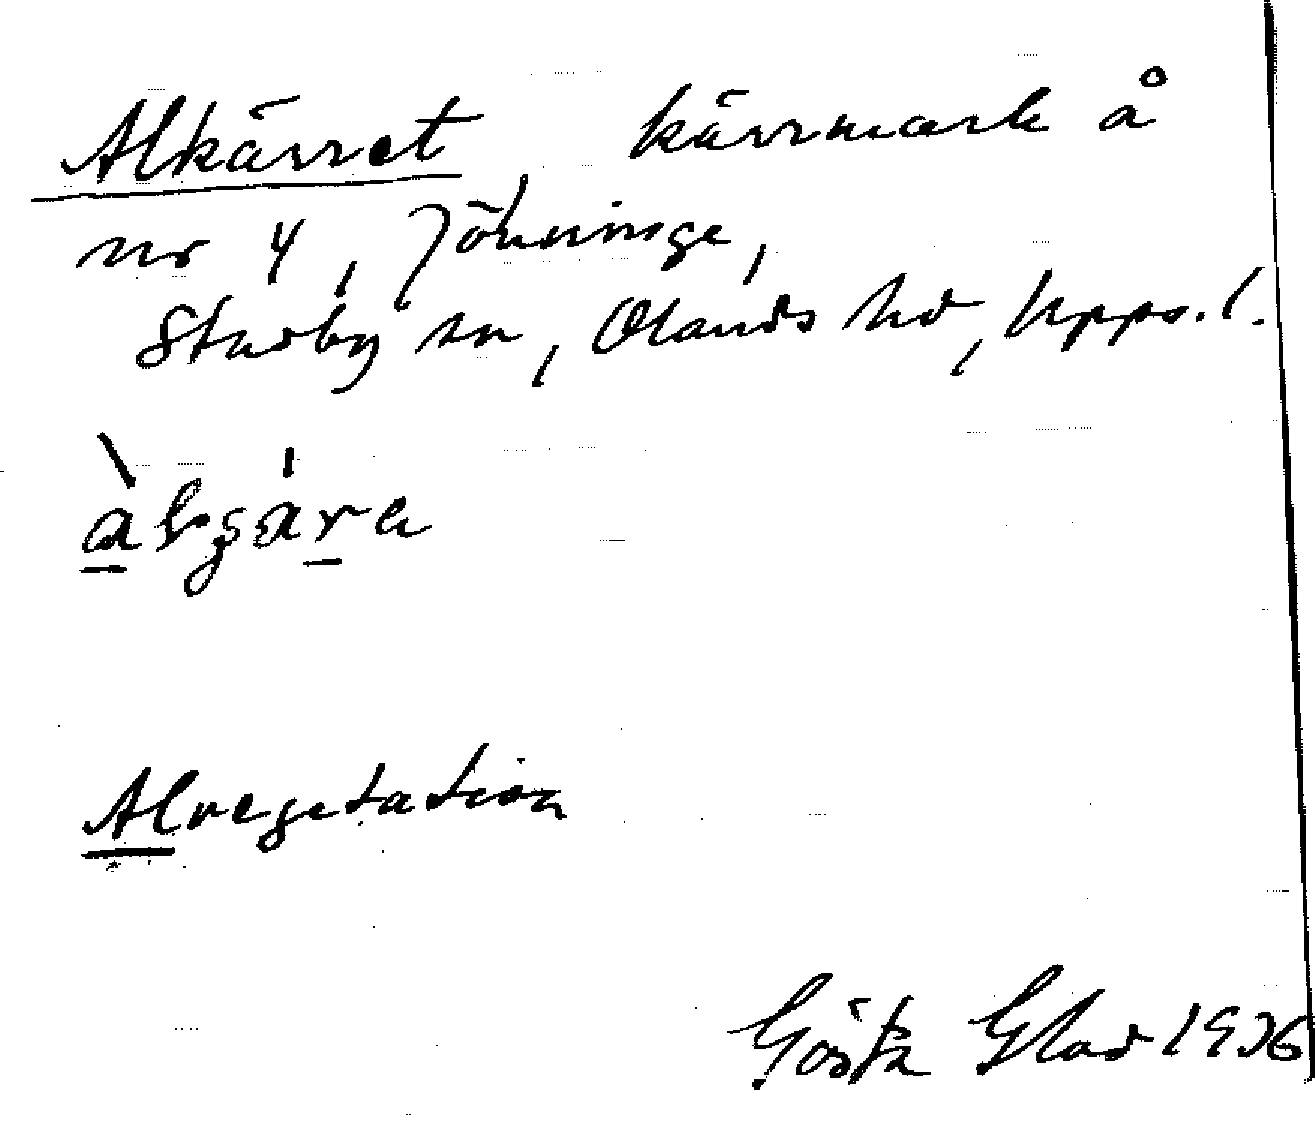 Alkärret, kärrmark å
nr 4, Jönninge,
Stavby sn, Olands hd, Upps. l.
Alvegetation
Gösta Glad 1936